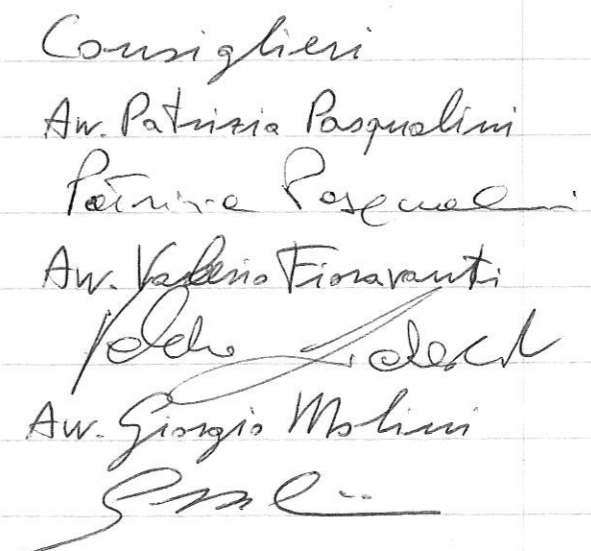 Consiglieri
Avv. Patrizia Pasqualini
Patrizia Pasqualini
Avv. Valerio Fioravanti
Avv. Giorgio Molini